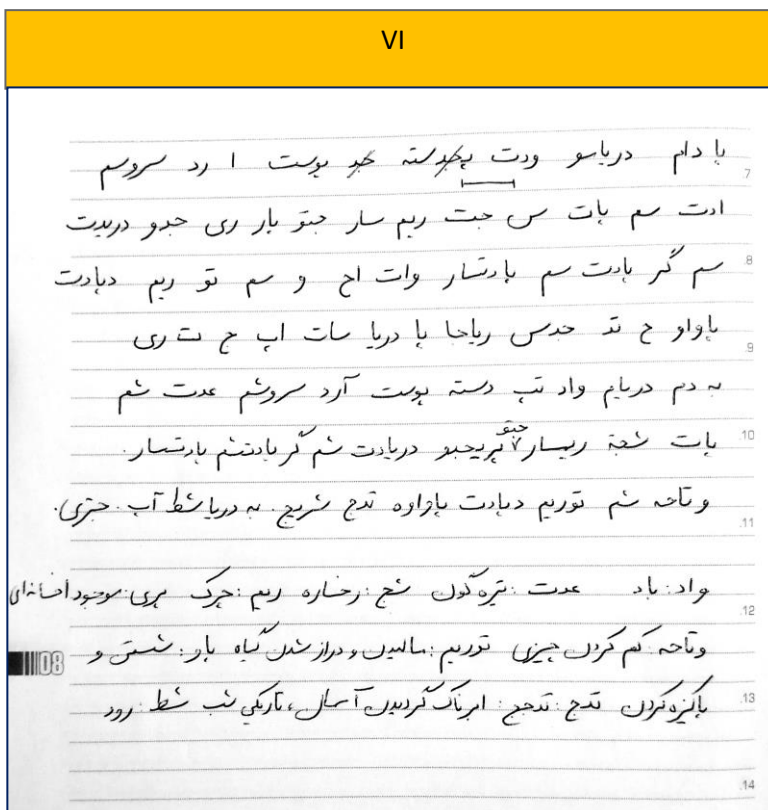 VI
با دام دریاسو ودت پجوسته جو پوست ا رد سروسم
ادت سم بات س جت ریم سار جتو بار ری جدو دریدت
سم گر بادت سم بادتسار وات اح و سم تو ریم دبادت
باواو ح تد حدس ریاحا با دریا سات اب ج ت ری
به دم دریام واد تب دسته پوست آرد سروشم عدت شم
بات شجة ریسار جتو پریجبو دریادت شم گر بادتشم بادتسار.
وتاحه شم توریم دبادت باواوه تدج شریج. به دریا شط آب. جتری.
واد: باد عدت: تیره گون شج: رخساره ریم: چرک پری: موجود افسانه‌ای
وتاحه: کم کردن چیزی توریم: مالیدن و دراز شدن گیاه باو: شستن و
پاکیزه کردن تدج: تدجج: ابرناک گردیدن آسمان، تاریکی شب شط: رود
7
8
9
10
11
12
13
14
08